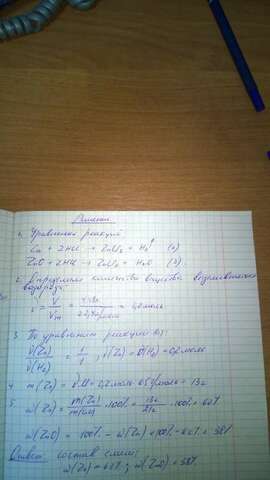 Решение
1. Уравнения реакций
Zn + 2HCl → ZnCl₂ + H₂↑ (а)
ZnO + 2HCl → ZnCl₂ + H₂O (б)
2. Определяем количество вещества выделившегося
водорода:
ν = V/Vm = = 0,2 моль
3. По уравнению реакции (а):
ν(Zn)/ν(H₂) = 1/1, ν(Zn) = ν(H₂) = 0,2 моль
4. m(Zn) = ν·M = 0,2 моль · 65 г/моль = 13 г
5. ω(Zn) = m(Zn)/m( ) · 100% = 13г/21г · 100% = 62%
ω(ZnO) = 100% - ω(Zn) = 100% - 62% = 38%
Ответ: состав смеси:
ω(Zn) = 62%; ω(ZnO) = 38%.